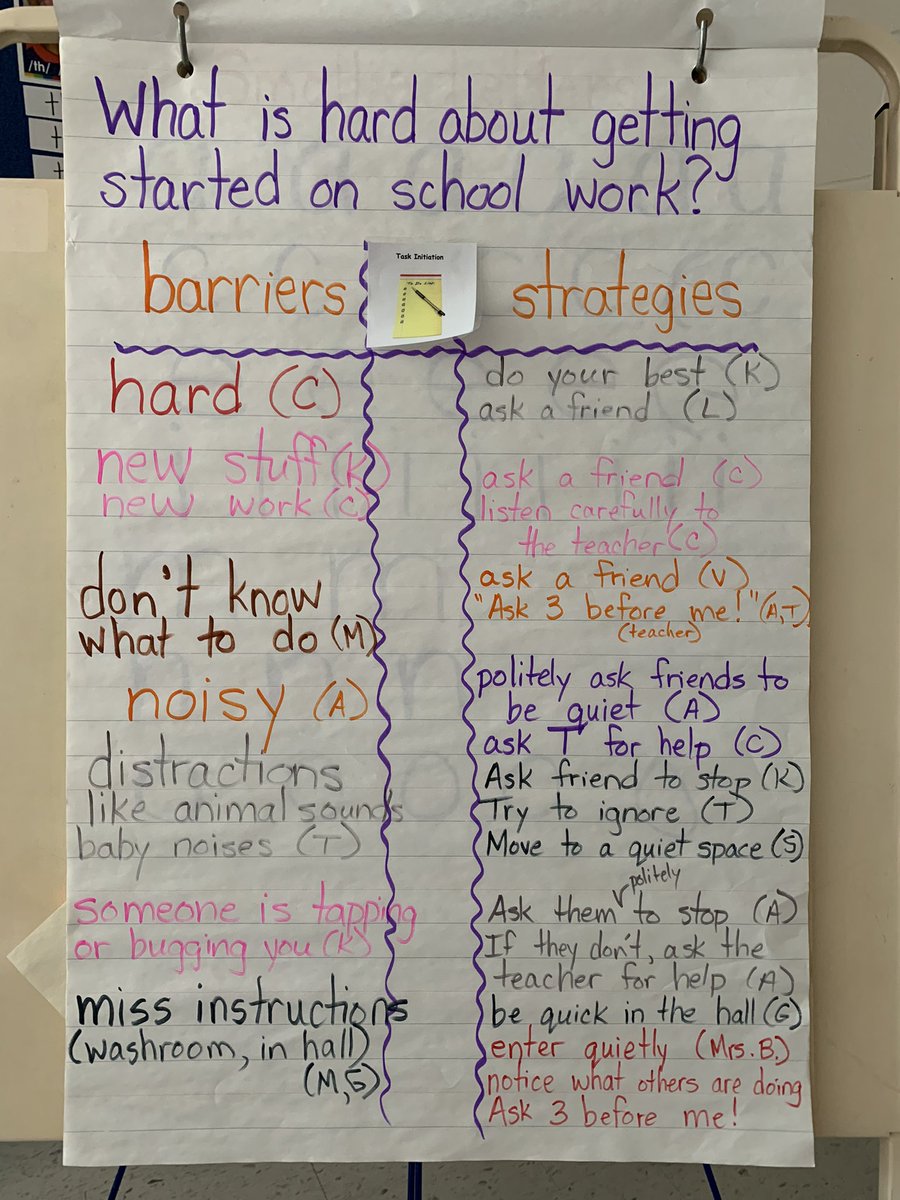 /th/
What is hard about getting
started on school work?
Task Initiation
To Do List
barriers
strategies
hard (C)
new stuff (K)
new work (C)
don't know
what to do (M)
noisy (A)
distractions
like animal sounds
baby noises (T)
someone is tapping
or bugging you (K)
miss instructions
(washroom, in hall)
(M,G)
do your best (K)
ask a friend (L)
ask a friend (C)
listen carefully to
the teacher (C)
ask a friend (V)
"Ask 3 before me!" (A,T)
(teacher)
politely ask friends to
be quiet (A)
ask T for help (C)
Ask friend to stop (K)
Try to ignore (T)
Move to a quiet space (S)
politely
Ask them to stop (A)
If they don't, ask the
teacher for help (A)
be quick in the hall (G)
enter quietly (Mrs. B.)
notice what others are doing
Ask 3 before me!